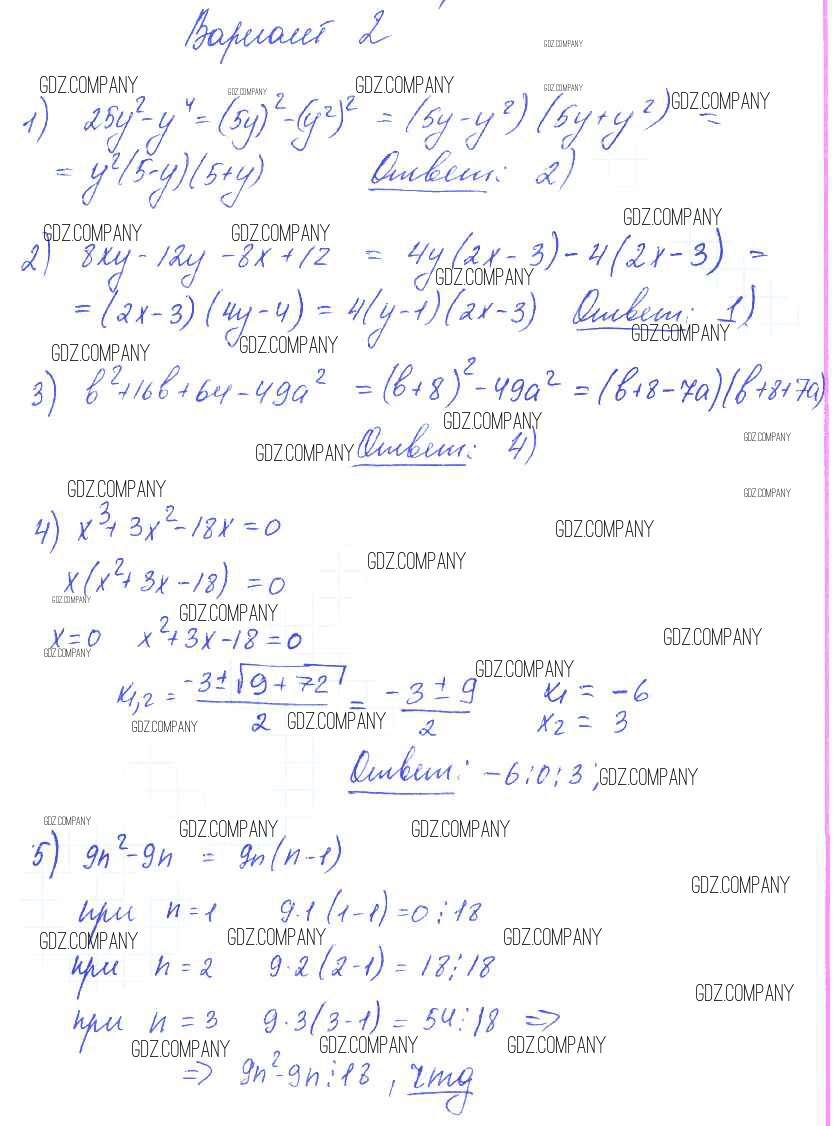 Вариант 2
GDZ.COMPANY
GDZ.COMPANY GDZ.COMPANY GDZ.COMPANY GDZ.COMPANY GDZ.COMPANY
1) 25y²-y⁴ = (5y)² - (y²)² = (5y-y²)(5y+y²) =
= y²(5-y)(5+y) Ответ: 2)
GDZ.COMPANY
GDZ.COMPANY GDZ.COMPANY
2) 8xy - 12y - 8x + 12 = 4y(2x-3) - 4(2x-3) =
GDZ.COMPANY
= (2x-3)(4y-4) = 4(y-1)(2x-3) Ответ: 1)
GDZ.COMPANY GDZ.COMPANY GDZ.COMPANY
3) b²+16b+64-49a² = (b+8)² - 49a² = (b+8-7a)(b+8+7a)
GDZ.COMPANY GDZ.COMPANY
GDZ.COMPANY Ответ: 4)
GDZ.COMPANY GDZ.COMPANY
4) x³+3x²-18x = 0 GDZ.COMPANY
GDZ.COMPANY
x(x²+3x-18) = 0
GDZ.COMPANY GDZ.COMPANY
x=0 x²+3x-18=0 GDZ.COMPANY
GDZ.COMPANY GDZ.COMPANY
x₁,₂ = (-3±√(9+72))/2 = (-3±9)/2 x₁ = -6
x₂ = 3
GDZ.COMPANY GDZ.COMPANY
Ответ: -6; 0; 3; GDZ.COMPANY
GDZ.COMPANY GDZ.COMPANY GDZ.COMPANY
5) 9n²-9n = 9n(n-1)
GDZ.COMPANY
при n=1 9·1(1-1)=0⋮18
GDZ.COMPANY GDZ.COMPANY GDZ.COMPANY
при n=2 9·2(2-1)=18⋮18
GDZ.COMPANY
при n=3 9·3(3-1)=54⋮18 =>
GDZ.COMPANY GDZ.COMPANY GDZ.COMPANY
=> 9n²-9n⋮18, чтд